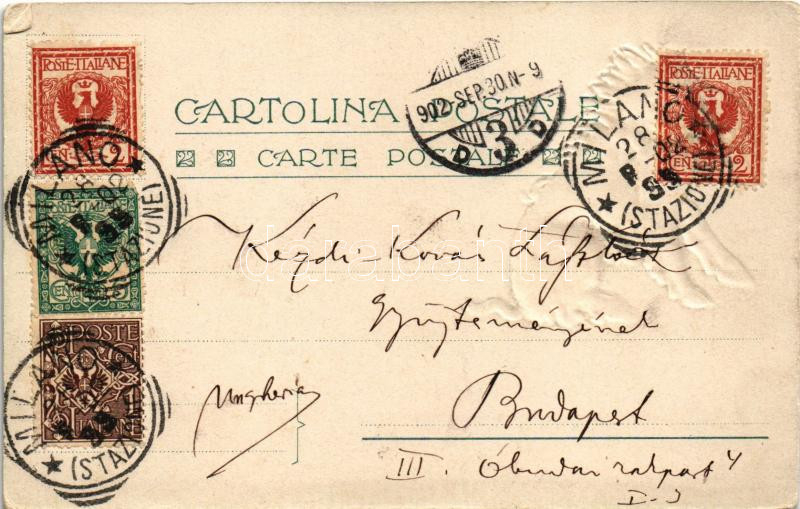 POSTE·ITALIANE
CENT. 2
POSTE·ITALIANE
CENT 2
902·SEP.30.N-9
3
D D
CARTOLINA POSTALE
CARTE POSTALE
MILANO
28
(STAZIONE)
MILANO
(STAZIONE)
POSTE
MILANO
(STAZIONE)
darabanth
Kézdi-Kovács László
Gyűjteményének
Ungheria
Budapest
III. Óbudai rakpart 4
I-3